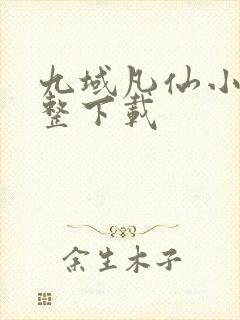 九域凡仙小
整下载
余生木子